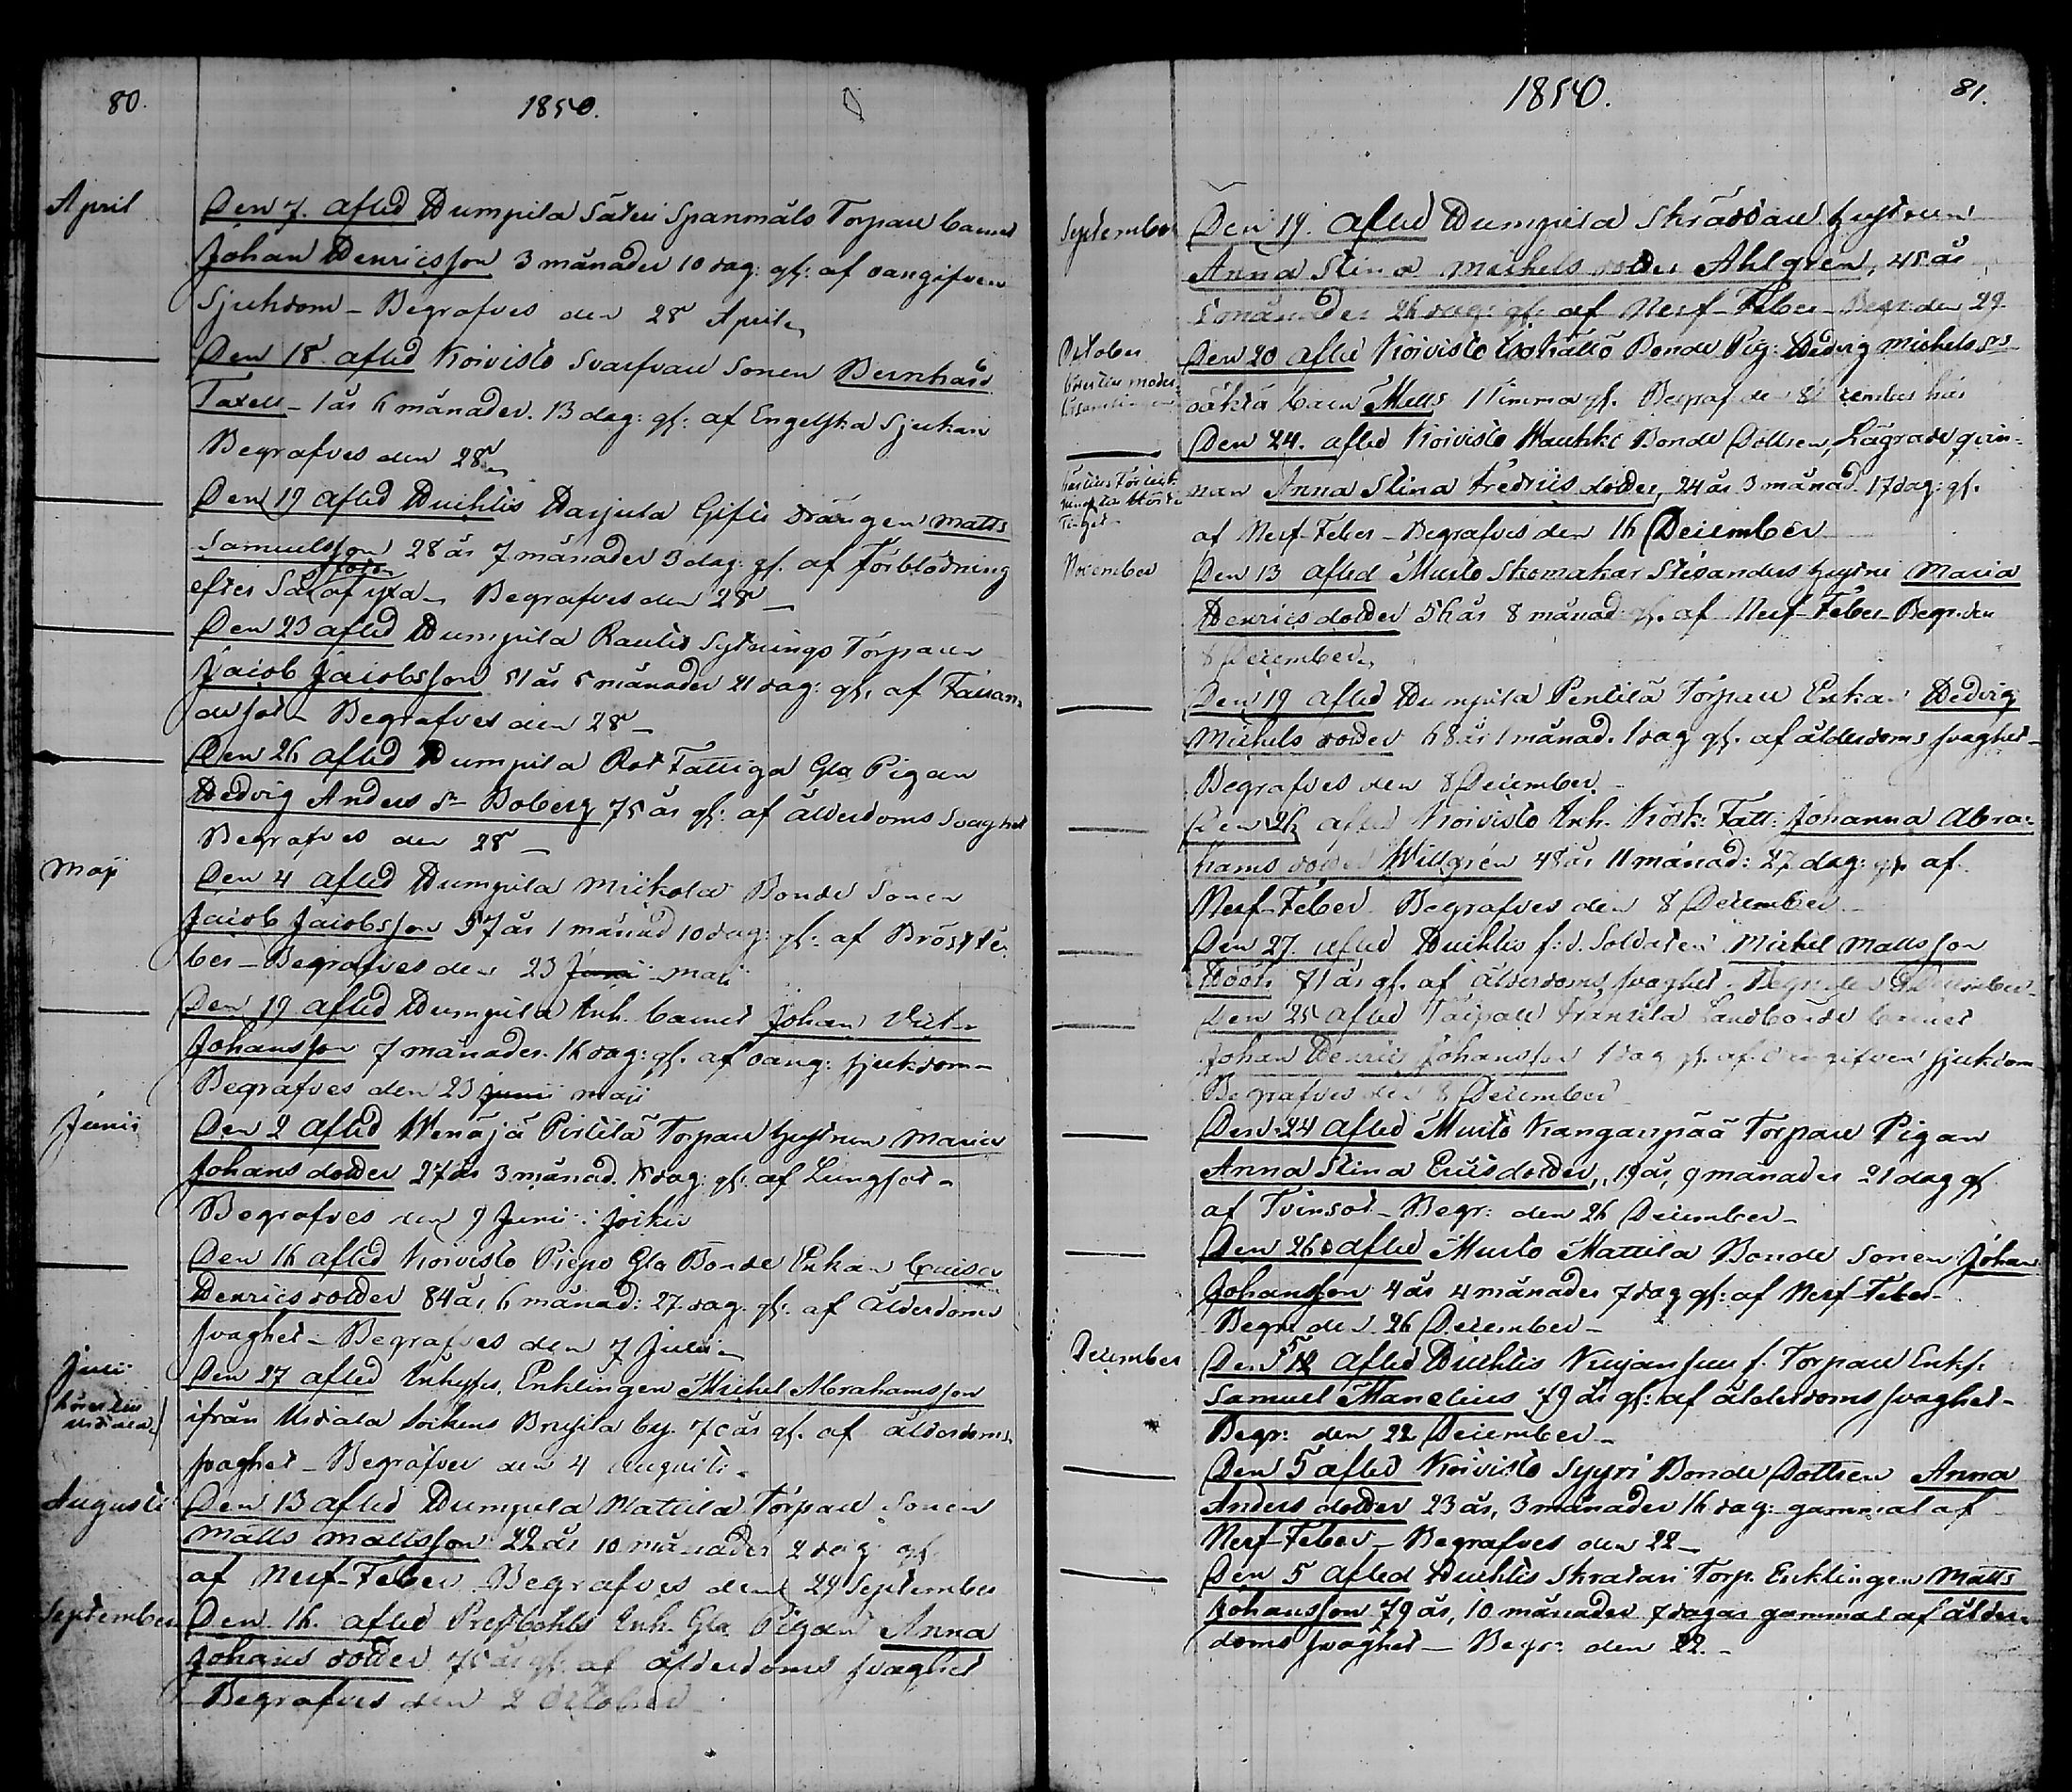 80.
1850.
April
Den 7. afled Humpila Säteri Spanmåls Torpare barnet
Johan Henricsson 3 månader 10 dag: gl: af oangifven
Sjukdom - Begrafves den 28 April
Den 18 afled Koivisto Svarfvare Sonen Bernhard
Taxell - 1 år 6 månader. 13 dag: gl: af Engelska Sjukan
Begrafves den 28
Den 19 afled Huihtis Harjula Gifte drängen Matts
Samuelsson 28 år 7 månader 3 dag: gl. af Förblödning
efter Sår af yxa - Begrafves den 28 -
Den 23 afled Humpila Rautio Sytnings Torparen
Jacob Jacobsson 51 år 5 månader 21 dag: gl. af Täran-
de sot - Begrafves den 28 -
Den 26 afled Humpila Rot Fattiga Gla Pigan
Hedvig Anders dr Boberg 75 år gl: af ålderdoms Svaghet
Begrafves den 28 -
Maji
Den 4 afled Humpila Mickola Bonde Sonen
Jacob Jacobsson 57 år 1 månad 10 dag: gl: af Bröstfe-
ber - Begrafves den 23 Junii maii
Den 19 afled Humpila Inh. barnet Johan Vict-
Johansson 7 månader. 16 dag: gl. af oang: sjukdom -
Begrafves den 23 junii maji
Junii
Den 2 afled Wenäjä Pirtilä Torpare hustrun Maria
Johans dotter 27 år 3 månad. 5 dag: gl. af Lungsot -
Begrafves den 9 Junii i Jockis
Den 16 afled Koivisto Piepo Gla Bonde Enkan Caisa
Henricsdotter 84 år 6 månad: 27 dag. gl. af Ålderdoms
svaghet - Begrafves den 7 Julii -
Julii
Den 27 afled Inhyses Enklingen Michel Abrahamsson
ifrån Urdiala Sockens by. 70 år gl. af ålderdoms
svaghet - Begrafves den 4 Augusti.
Augusti
Den 13 afled Humpila Mattila Torpare Sonen
Matts Mattsson 22 år 10 månader 2 dag: gl.
af Nerf-Feber Begrafves den 29 September
September
Den 16. afled Prestbohls Inh. Gla Pigan Anna
Johans dotter 75 år gl. af ålderdoms svaghet
Begrafves den 2 October
1850.
81.
September
Den 19. Afled Humpila Skräddare hustrun
Anna Stina Michels dotter Ahlgren, 45 år
5 månader 26 dag: gl. af Nerf-Feber - Begr: den 29
October
Den 20 afled Koivisto Bonde Pig: Hedvig Michels dr
oäkta barn Matts 1 Timma gl. Begraf den
Den 24. afled Koivisto Haukka Bonde Dottren, Lägrade qvin-
nan Anna Stina Fredrics dotter, 24 år 3 månad. 17 dag: gl.
af Nerf-Feber - Begrafves den 16 December
November
Den 13 afled Murto Skomakar hustru Maria
Henrics dotter 56 år 8 månad: gl. af Nerf-Feber - Begr: den
8 December
Den 19 afled Humpila Pentilä Torpare Enkan Hedvig
Michels dotter 68 år 1 månad. 1 dag gl. af ålderdoms svaghet -
Begrafves den 8 December -
Den 26 afled Koivisto Inh. Kork: Fatt: Johanna Abra-
hams dotter Willgrén 48 år 11 månad: 27 dag: gl. af
Nerf-Feber. Begrafves den 8 December -
Den 27. afled Huihtis f: d. Soldaten Michel Mattsson
71 år gl. af Ålderdoms svaghet - Begr: den 8 December -
Den 25 afled Taipale Frantsila Landbonde barnet
Johan Henric Johansson 1 dag gl. af oangifven sjukdom
Begrafves den 8 December
Den 24 afled Murto Kanganpää Torpare Pigan
Anna Stina Ericsdotter, 19 år, 9 månader 21 dag gl
af Tvinsot - Begr: den 26 December -
Den 26 afled Murto Mattila Bonde Sonen Johan
Johansson 4 år 4 månader 7 dag gl: af Nerf-Feber -
Begr: den 26 December -
December
Den 5 Afled Huihtis Kujansuu f. Torpare Enkl.
Samuel Manelius 79 år gl: af ålderdoms svaghet -
Begr: den 22 December -
Den 5 afled Koivisto Syyri Bonde Dottren Anna
Anders dotter 23 år, 3 månader 16 dag: gammal af
Nerf-Feber - Begrafves den 22 -
Den 5 Afled Huihtis Skratari Torp. Enklingen Matts
Johansson 79 år, 10 månader 7 dagar gammal af ålder-
doms svaghet - Begr: den 22. -